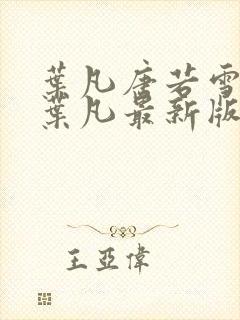 葉凡唐若雪
葉凡最新版
王亞偉